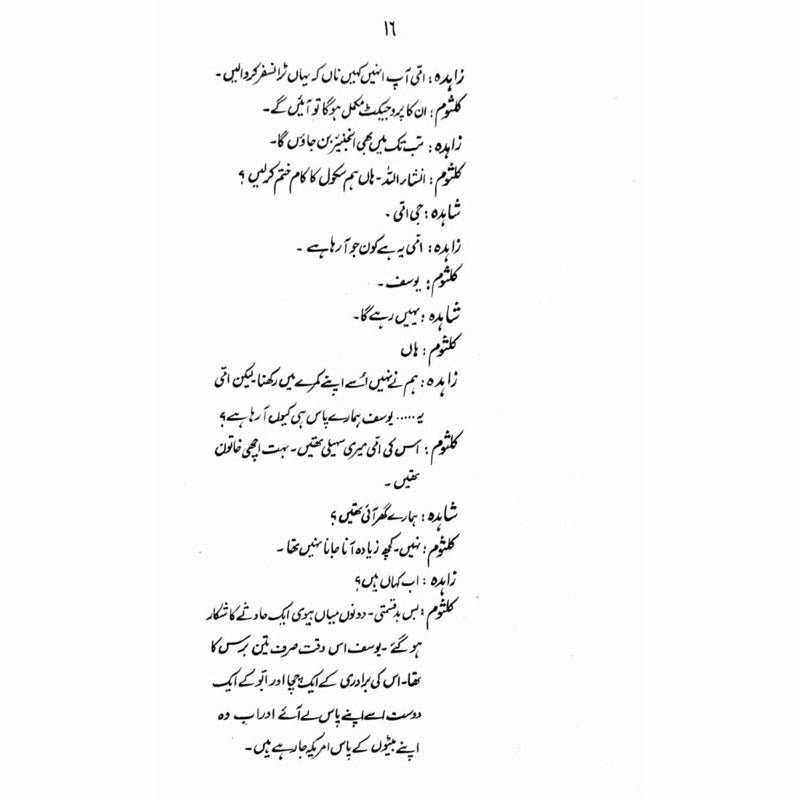 ۱۶
زاہدہ: امّی آپ انہیں کہیں ناں کہ یہاں ٹرانسفر کر والیں۔
کلثوم: ان کا پروجیکٹ مکمل ہوگا تو آئیں گے۔
زاہدہ: تب تک میں بھی انجنیئر بن جاؤں گا۔
کلثوم: انشاءاللہ۔ ہاں ہم سکول کا کام ختم کرلیں ؟
شاہدہ: جی امّی ۔
زاہدہ: امّی یہ ہے کون جو آرہا ہے ۔
کلثوم: یوسف ۔
شاہدہ: یہیں رہے گا۔
کلثوم: ہاں
زاہدہ: ہم نے نہیں اُسے اپنے کمرے میں رکھنا۔ لیکن امّی
یہ..... یوسف ہمارے پاس ہی کیوں آرہا ہے؟
کلثوم: اس کی امّی میری سہیلی تھیں۔ بہت اچھی خاتون
تھیں ۔
شاہدہ: ہمارے گھر آئی تھیں ؟
کلثوم: نہیں۔ کچھ زیادہ آنا جانا نہیں تھا ۔
زاہدہ : اب کہاں ہیں؟
کلثوم: بس بدقسمتی۔ دونوں میاں بیوی ایک حادثے کا شکار
ہو گئے ۔ یوسف اس وقت صرف تین برس کا
تھا۔ اس کی برادری کے ایک چچا اور ابّو کے ایک
دوست اسے اپنے پاس لے آئے اور اب وہ
اپنے بیٹوں کے پاس امریکہ جا رہے ہیں۔